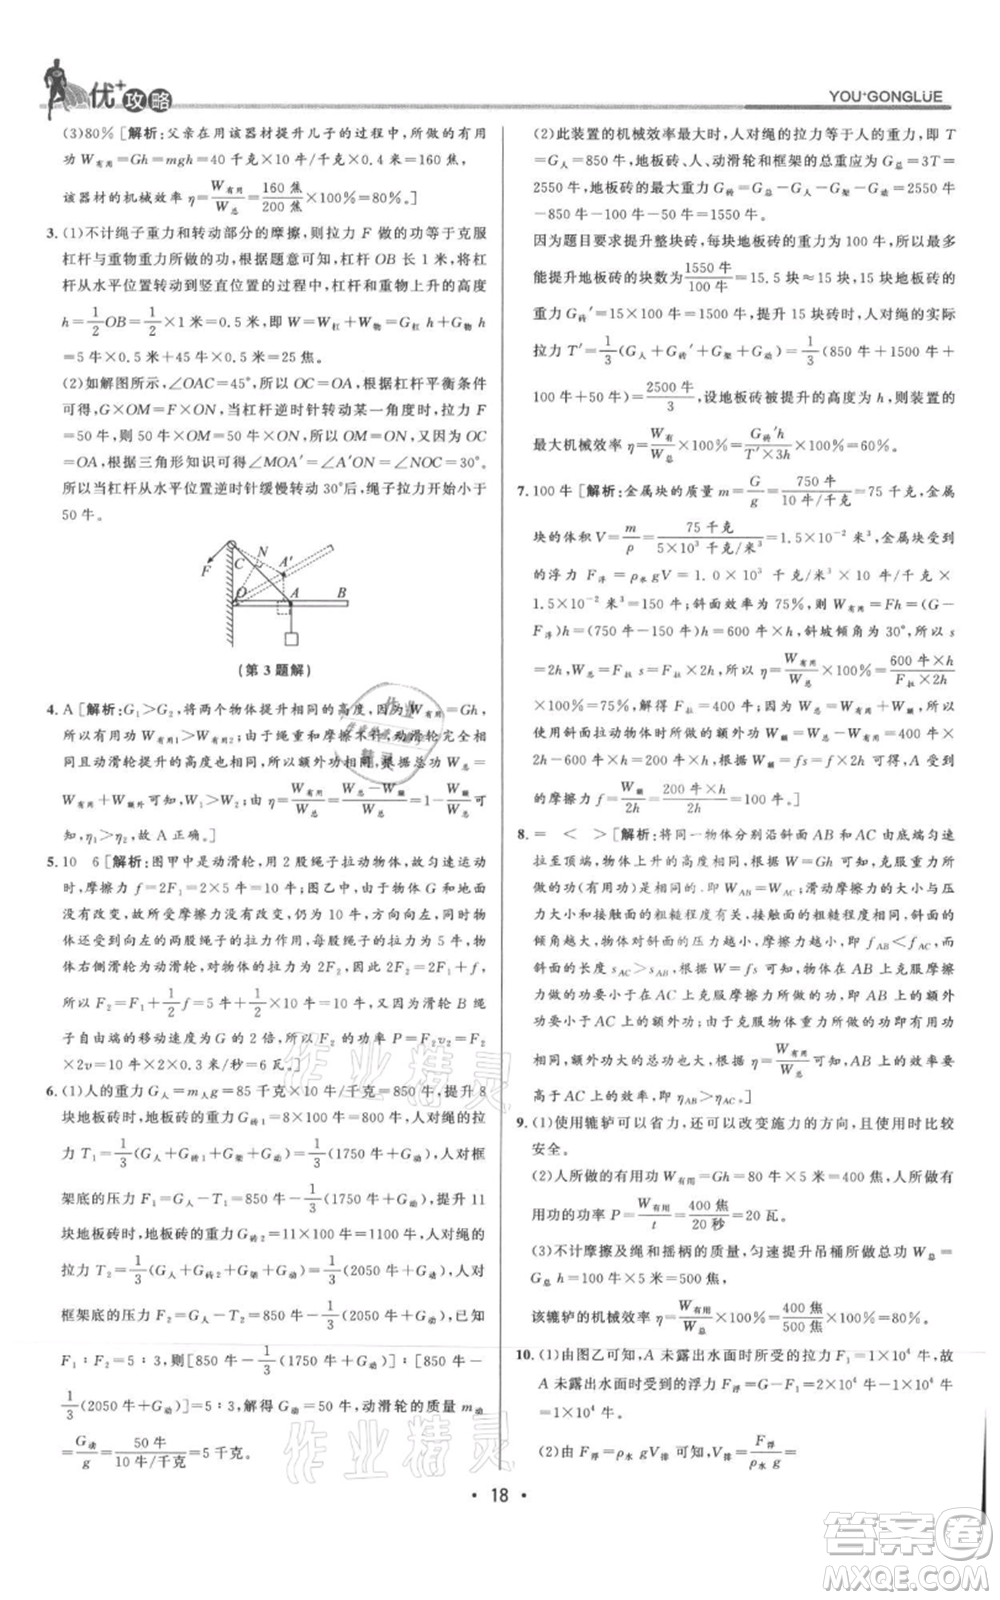 优+攻略
YOU+GONGLUE
(3)80% [解析:父亲在用该器材提升儿子的过程中,所做的有用
功 W有用=Gh=mgh=40 千克×10 牛/千克×0.4 米=160 焦,
该器材的机械效率 η=W有用/W总=160 焦/200 焦×100%=80%。]
3. (1)不计绳子重力和转动部分的摩擦,则拉力 F 做的功等于克服
杠杆与重物重力所做的功,由题意可知,杠杆 OB 长 1 米,将杠
杆从水平位置转动到竖直位置的过程中,杠杆和重物上升的高度
h=1/2OB=1/2×1 米=0.5 米,即 W=W杠+W物=G杠 h+G物 h
=5 牛×0.5 米+45 牛×0.5 米=25 焦。
(2)如解图所示,∠OAC=45°,所以 OC=AC,根据杠杆平衡条件
可得,G×OM=F×ON,当杠杆逆时针转动某一角度时,拉力 F
=50 牛,则 50 牛×OM=50 牛×ON,所以 OM=ON,又因为 OC
=OA,根据三角形知识可得∠MOA′=∠A′ON=∠NOC=30°。
所以当杠杆从水平位置逆时针缓慢转动 30°后,绳子拉力大小等于
50 牛。
F
C
N
A′
O
A
B
(第 3 题解)
4. A [解析:G₁>G₂,将两个物体提升相同的高度,因为 W有用=Gh,
所以有用功 W有用1>W有用2;由于绳重和摩擦不计,动滑轮完全相
同且动滑轮提升的高度相同,所以额外功相同,根据总功 W总=
W有用+W额外可知,W₁>W₂;由于 η=W有用/W总=W总-W额/W总=1-W额/W总可
知,η₁>η₂,故 A 正确。]
5. 10 6 [解析:图甲中是动滑轮,用 2 股绳子拉动物体,匀速运动
时,摩擦力 f=2F₁=2×5 牛=10 牛;图乙中,由于物体 G 和地面
情况没有改变,所以受到摩擦力的大小不变,仍为 10 牛,向右,物
体还受到向左的两股绳子的拉力作用,每股拉力为 5 牛,同时物
体右侧绳子为动滑轮,对物体的拉力为 2F₂,根据二力平衡可知,
2F₂=f+2f,所以 F₂=1/2f+5 牛=1/2×10 牛+5 牛=10 牛;滑轮 B 绳
子自由端的移动速度为 G 的 2 倍,所以 F₂ 的功率 P=F₂v₂=F₂
×2v=10 牛×2×0.3 米/秒=6 瓦。]
6. (1)人的重力 G人=m人 g=85 千克×10 牛/千克=850 牛,提升 8
块地板砖时,地板砖的重力 G砖1=8×100 牛=800 牛,人对绳的拉
力 T₁=1/3(G人+G砖1+G架+G动)=1/3(1750 牛+G动),人对框
架底的压力 F₁=G人-T₁=850 牛-1/3(1750 牛+G动),提升 11
块地板砖时,地板砖的重力 G砖2=11×100 牛=1100 牛,人对绳的
拉力 T₂=1/3(G人+G砖2+G架+G动)=1/3(2050 牛+G动),人对
框架底的压力 F₂=G人-T₂=850 牛-1/3(2050 牛+G动),已知
F₁:F₂=5:3,则[850 牛-1/3(1750 牛+G动)]:[850 牛-
1/3(2050 牛+G动)]=5:3,解得 G动=50 牛,动滑轮的质量 m动
=G动/g=50 牛/10 牛/千克=5 千克。
(2)此装置的机械效率最大时,人对绳的拉力等于人的重力,即 T
=G人=850 牛,地板砖、人、动滑轮和框架的总重应为 G总=3T=
2550 牛,地板砖的最大重力 G砖=G总-G人-G架-G动=2550 牛
-850 牛-100 牛-50 牛=1550 牛。
因为题目要求提升整块砖,每块地板砖的重力为 100 牛,所以最多
能提升地板砖的块数为1550 牛/100 牛=15.5 块≈15 块,15 块地板砖的重
力 G砖′=15×100 牛=1500 牛,提升 15 块砖时,人对绳的实际
拉力 T′=1/3(G人+G砖′+G架+G动)=1/3(850 牛+1500 牛+
100 牛+50 牛)=2500 牛/3,设地板砖被提升的高度为 h,则装置的
最大机械效率 η=W有/W总×100%=G砖′h/T′×3h×100%=60%。
7. 100 牛 [解析:金属块的质量 m=G/g=750 牛/10 牛/千克=75 千克,金属
块的体积 V=m/ρ=75 千克/5×10³ 千克/米³=1.5×10⁻² 米³,金属块受到
的浮力 F浮=ρ水 gV=1.0×10³ 千克/米³×10 牛/千克×
1.5×10⁻² 米³=150 牛;斜面效率为 75%,则 W有用=Fh=(G-
F浮)h=(750 牛-150 牛)h=600 牛×h,斜坡倾角为 30°,所以 s
=2h,W总=F拉s=F拉×2h,所以 η=W有用/W总×100%=600 牛×h/F拉×2h
×100%=75%,解得 F拉=400 牛,W总=F拉×2h=400 牛×2h,所以
使用斜面拉动物体时,W额=W总-W有用=400 牛×2h-600 牛×h
=200 牛×h,因为 W总=W有用+W额,W额=fs=f×2h,A 受到
的摩擦力 f=W额/2h=200 牛×h/2h=100 牛。]
8. = < > [解析:将同一物体分别沿斜面 AB 和 AC 由底端匀速
拉至顶端,物体上升的高度相同,根据 W=Gh 可知,克服重力所
做的功(有用功)相同,即 WAB=WAC;滑动摩擦力的大小与压力
的大小和接触面的粗糙程度有关,斜面的粗糙程度相同,斜面的
倾角越大,物体对斜面的压力越小,摩擦力越小,即 fAB<fAC,由题
图可知,斜面的长度 sAC>sAB,根据 W=fs 可知,物体克服摩擦力
做的功要小于在 AC 上克服摩擦力做的功,即 AB 上的额外功
小于 AC 上的额外功;由于克服重力做的功相同,根据 η=W有用/W总=
W有用/W有用+W额可知,有用功相同时,额外功越小,机械效率越
高,额外功大的机械效率小,所以可知,AB 上的效率要高
于 AC 上的效率,即 ηAB>ηAC。]
9. (1)使用辘轳可以省力,还可以改变施力的方向,且使用时比较
安全。
(2)人所做的有用功 W有用=Gh=80 牛×5 米=400 焦,所以有
用功的功率 P=W有用/t=400 焦/20 秒=20 瓦。
(3)不计摩擦及绳和摇柄的质量,匀速提升吊桶所做的总功 W总=
G总h=100 牛×5 米=500 焦,
该辘轳的机械效率 η=W有用/W总×100%=400 焦/500 焦×100%=80%。
10. (1)由图乙可知,A 未露出水面时所受的拉力 F₁=1×10⁴ 牛,故
A 未露出水面时受到的浮力 F浮=G-F₁=2×10⁴ 牛-1×10⁴ 牛
=1×10⁴ 牛。
(2)由 F浮=ρ水 gV排 可知,V排=F浮/ρ水 g=
· 18 ·
作业精灵
作业精灵
答案卷
MXQE.COM